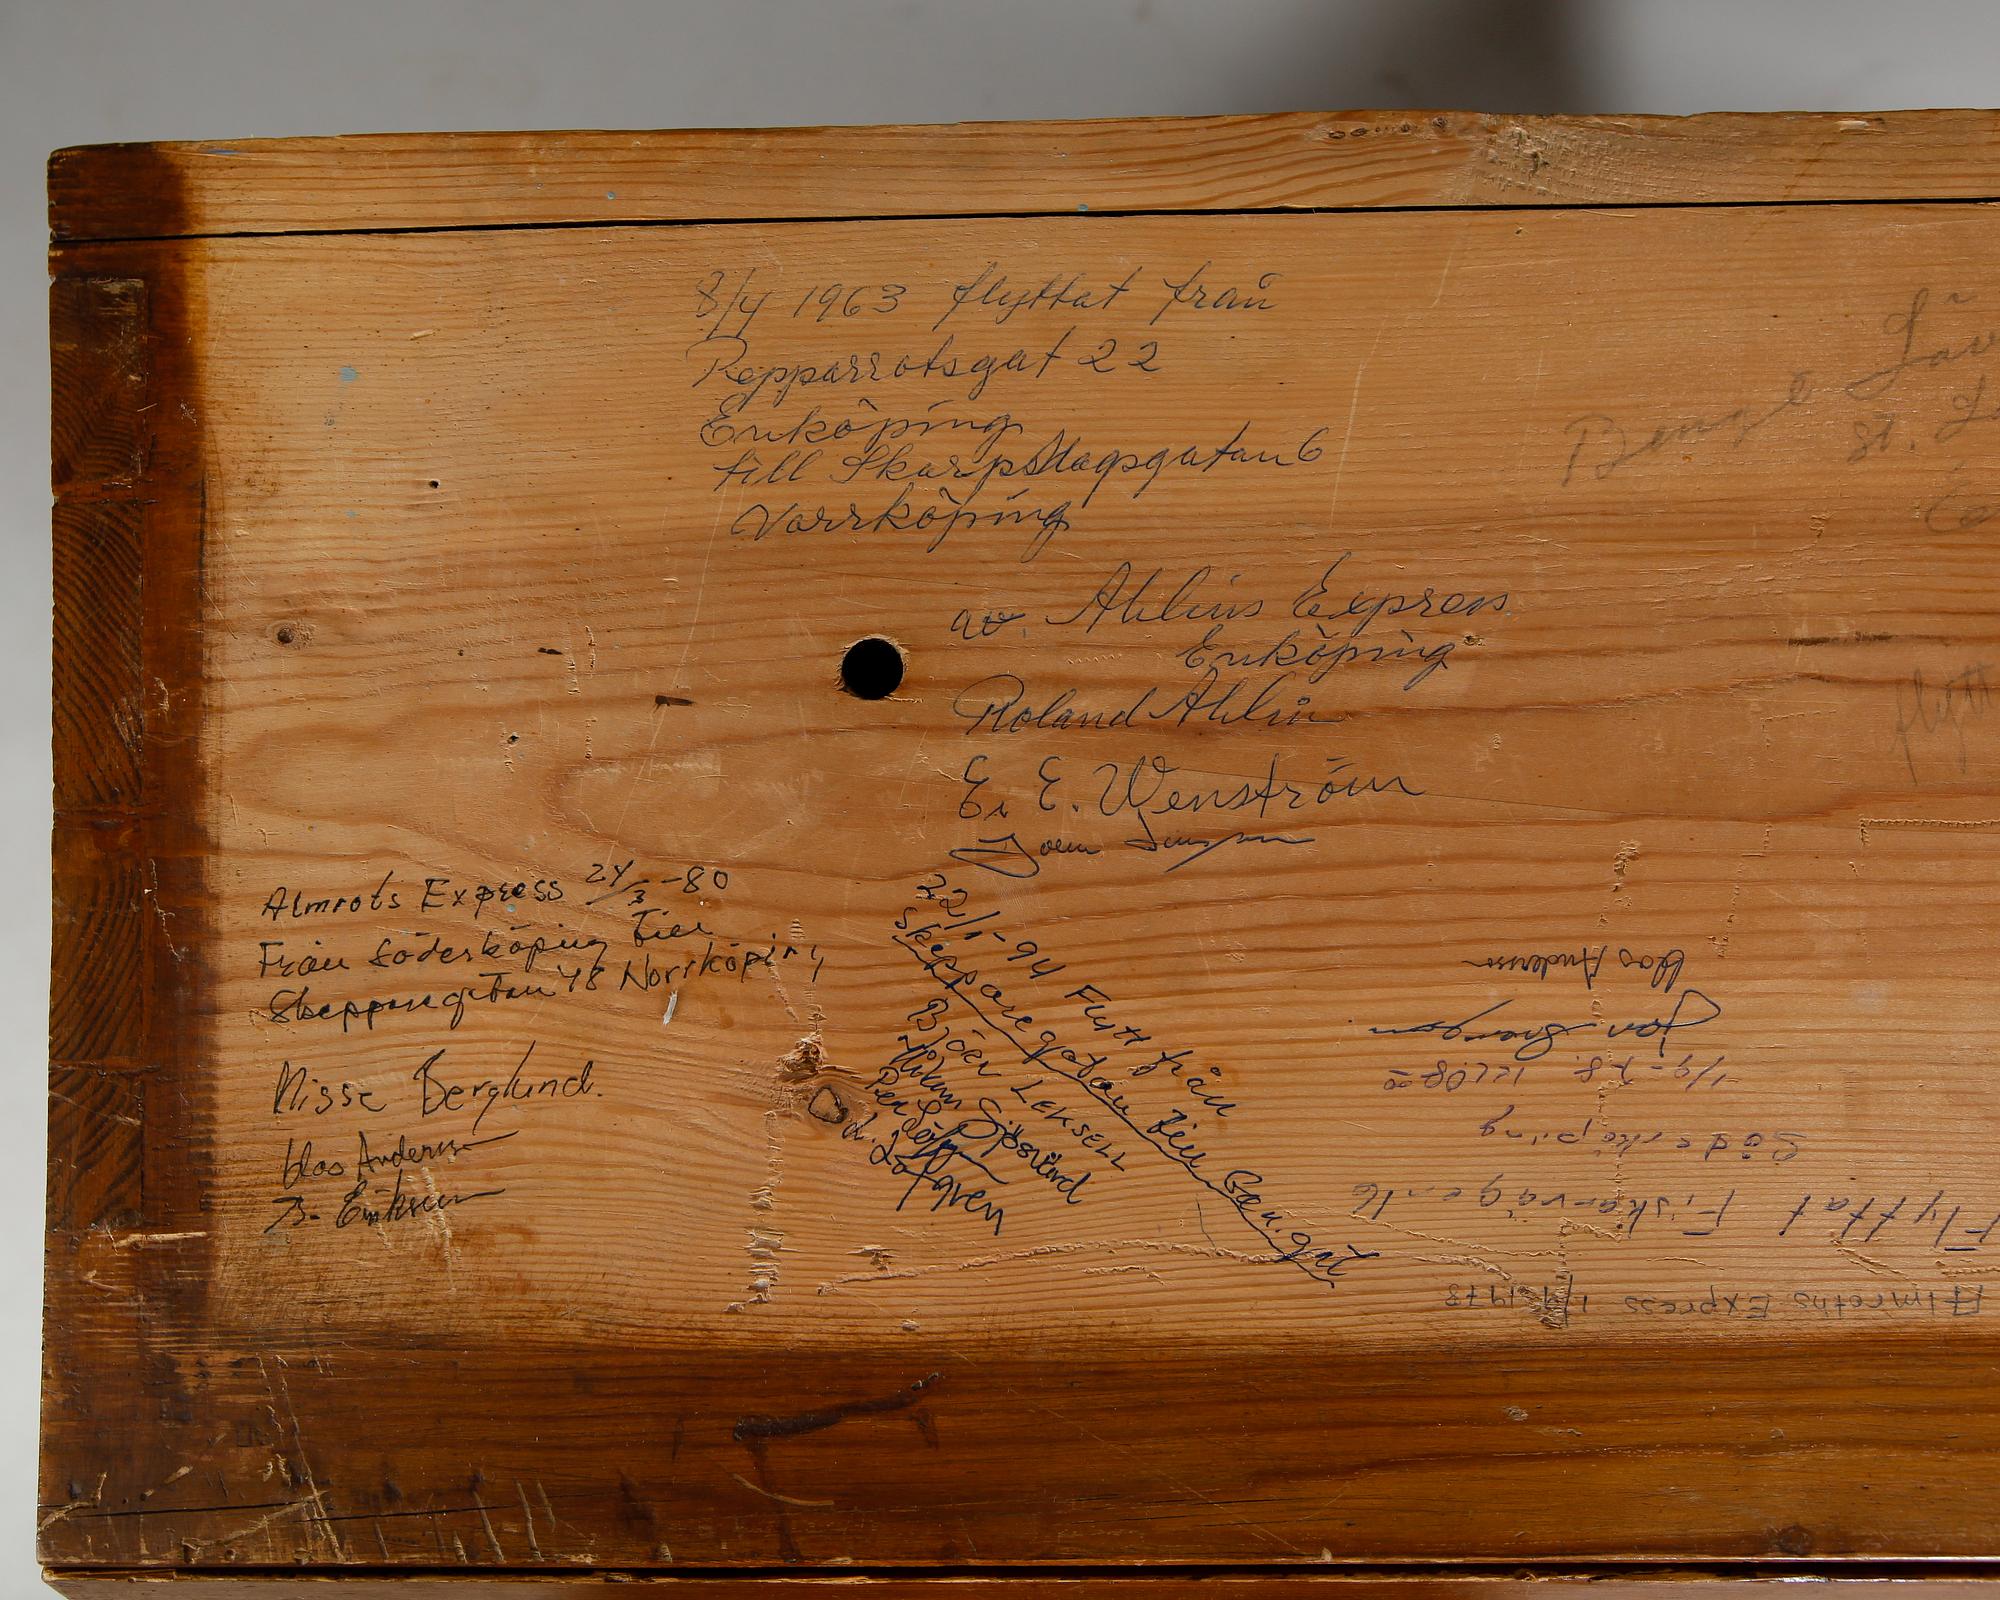 8/4 1963 flyttat från
Pepparrotsgat 22
Enköping
till Skarpslagsgatan 6
Norrköping
av. Ahlins Express
Enköping
Roland Ahlin
E. E. Wenström
Almrots Express 24/3 -80
Från Söderköping Till
Skepparegatan 48 Norrköping
Nisse Berglund.
Klas Andersson
B. Eriksson
22/1-94 Flytt från
Skepparegatan till Gen.gat
Björn LEKSELL
Håkan Sjöstrand
Per
Löfgren
Bengt
St.
flytt
Almroths Express 1/9 1978
Flyttat Fiskarvägen 16
Söderköping
1/9-78. kl 08 00
Jan
Klas Andersson